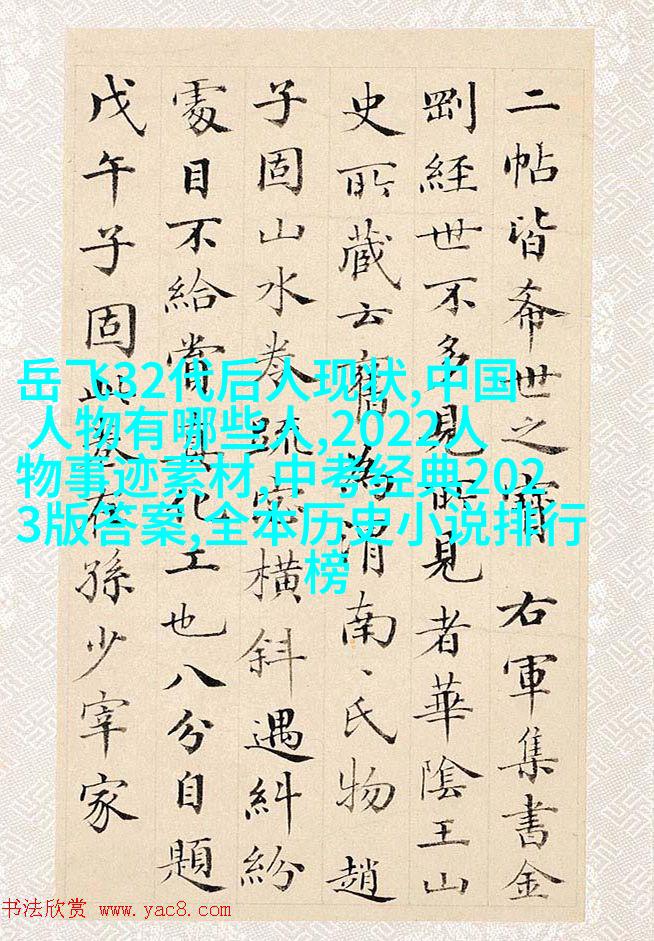 二帖皆希世之寶 右軍集書金
剛經世不多見所見者華陰王山
史所藏云舊為渭南、氏物趙
子固山水卷疏密橫斜遇糾紛
處目不給賞真化工也八分自題
戊午子固此在孫少宰家
岳飞32代后人现状,中国
人物有哪些人,2022人
物事迹素材,中考经典202
3版答案,全本历史小说排行
榜
书法欣赏 www.yac8.com